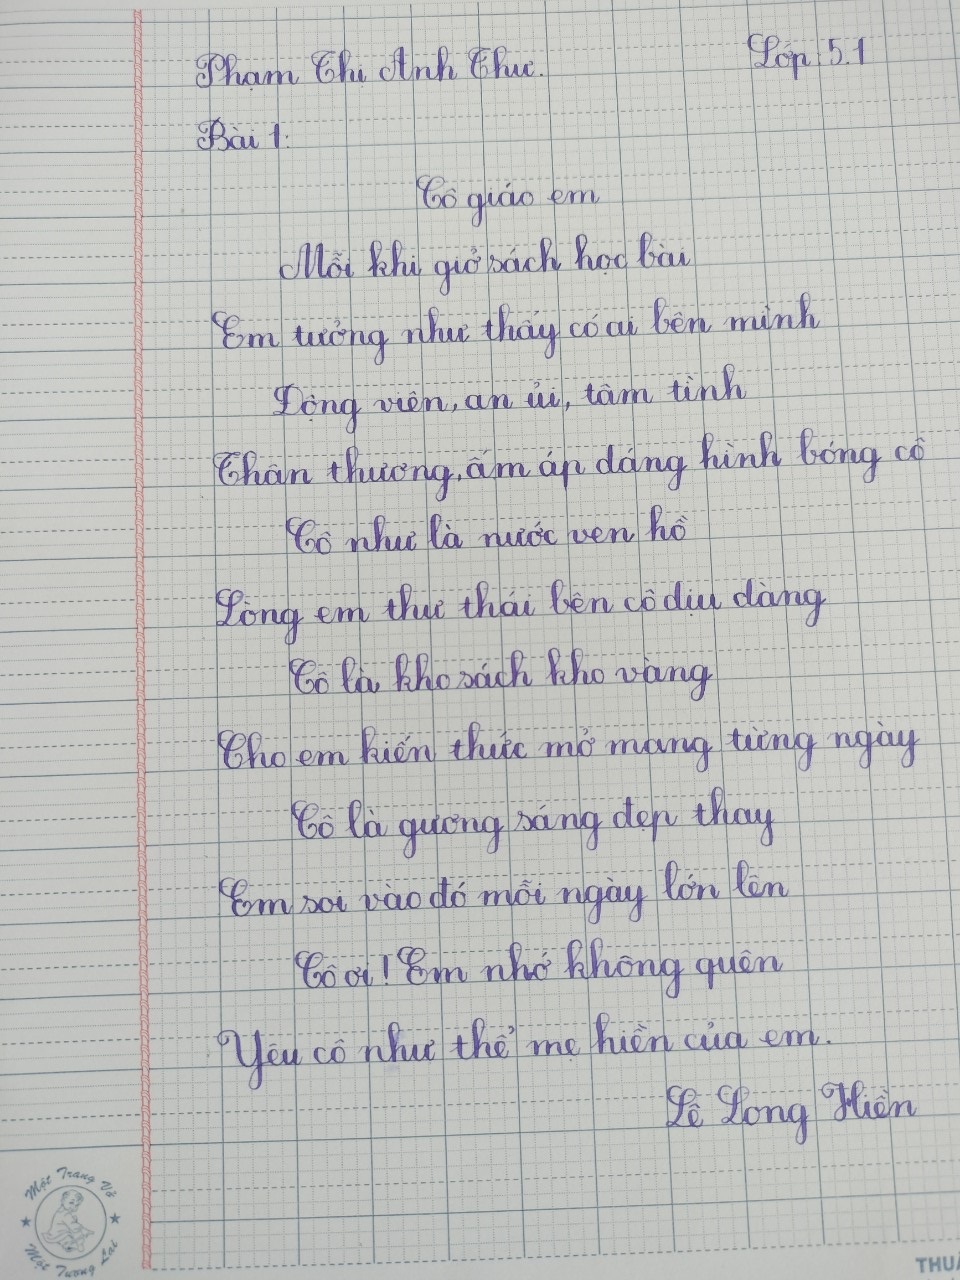 Phạm Thị Anh Thư. Lớp 5.1
Bài 1:
Cô giáo em
Mỗi khi giở sách học bài
Em tưởng như thấy có ai bên mình
Động viên, an ủi, tâm tình
Thân thương, ấm áp dáng hình bóng cô
Cô như là nước ven hồ
Lòng em thư thái bên cô dịu dàng
Cô là kho sách kho vàng
Cho em kiến thức mở mang từng ngày
Cô là gương sáng đẹp thay
Em soi vào đó mỗi ngày lớn lên
Cô ơi! Em nhớ không quên
Yêu cô như thể mẹ hiền của em.
Lê Long Hiền
Một Trang Vở
Một Tương Lai